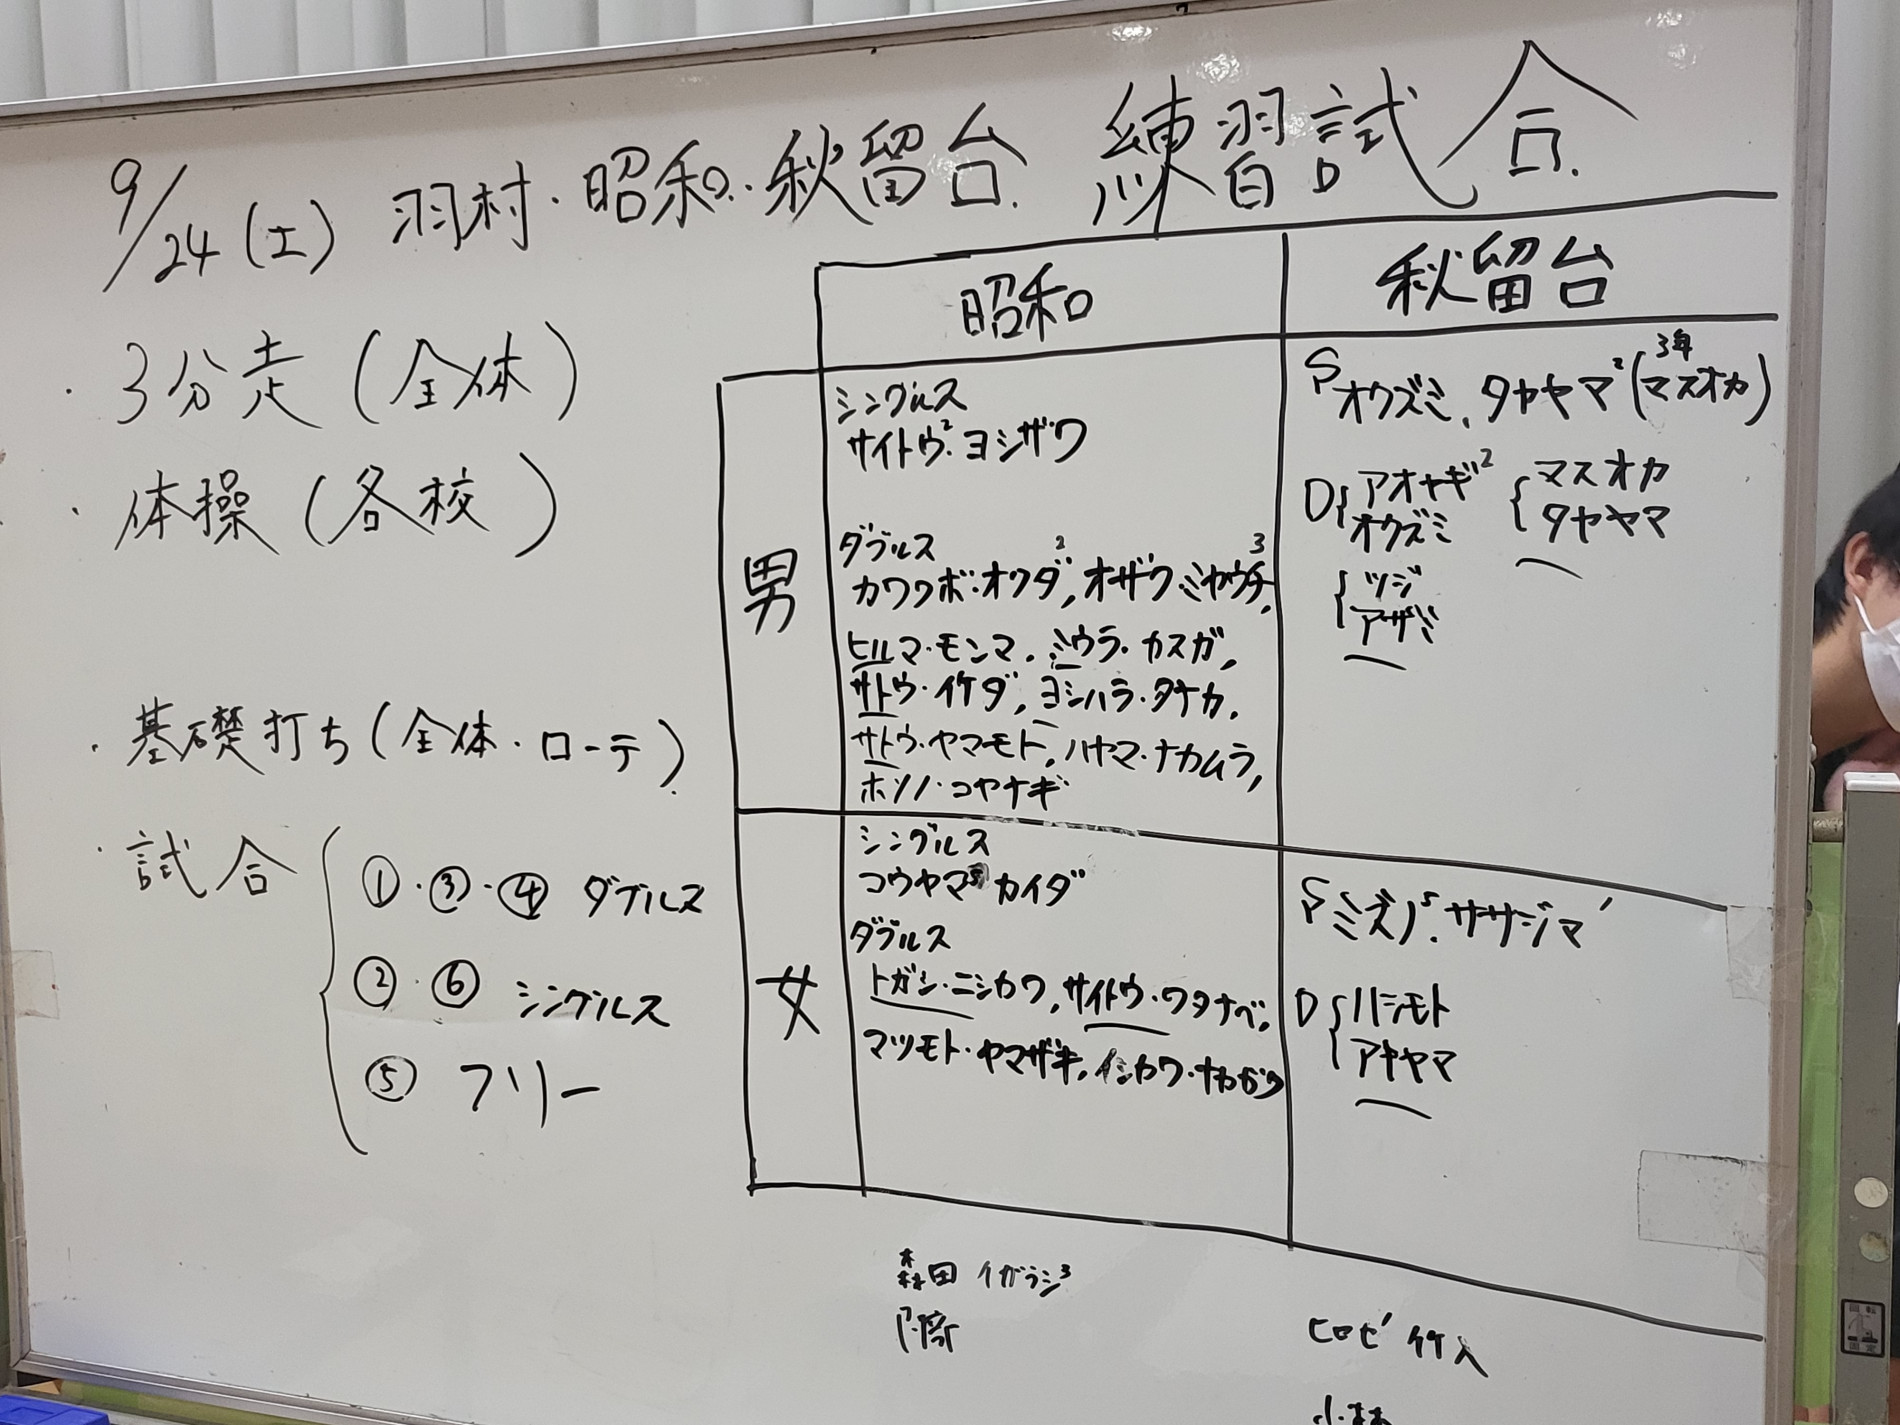 9/24(土) 羽村・昭和・秋留台 練習試合
・3分走(全体)
・体操(各校)
・基礎打ち(全体・ローテ)
・試合
①・③・④ ダブルス
②・⑥ シングルス
⑤ フリー
昭和
秋留台
男
シングルス
サイトウ2・ヨシザワ
ダブルス
カワクボ・オクダ2, オザワ・ミヤウチ3,
ヒルマ・モンマ, ミウラ・カスガ,
サトウ・イケダ, ヨシハラ・タナカ,
サトウ・ヤマモト, ハヤマ・ナカムラ,
ホソノ・コヤナギ
S オウズミ、タヤヤマ2(マスオカ)
3年
D{アオヤギ2 {マスオカ
オウズミ タヤヤマ
{ツジ
アザミ
女
シングルス
コウヤマ カイダ
ダブルス
トガシ・ニシカワ, サイトウ・ワタナベ,
マツモト・ヤマザキ, イシカワ・ナカガワ
S ミズノ・ササジマ
D{ハシモト
アキヤマ
森田 イガラシ3
竹入
小林
回転
固定